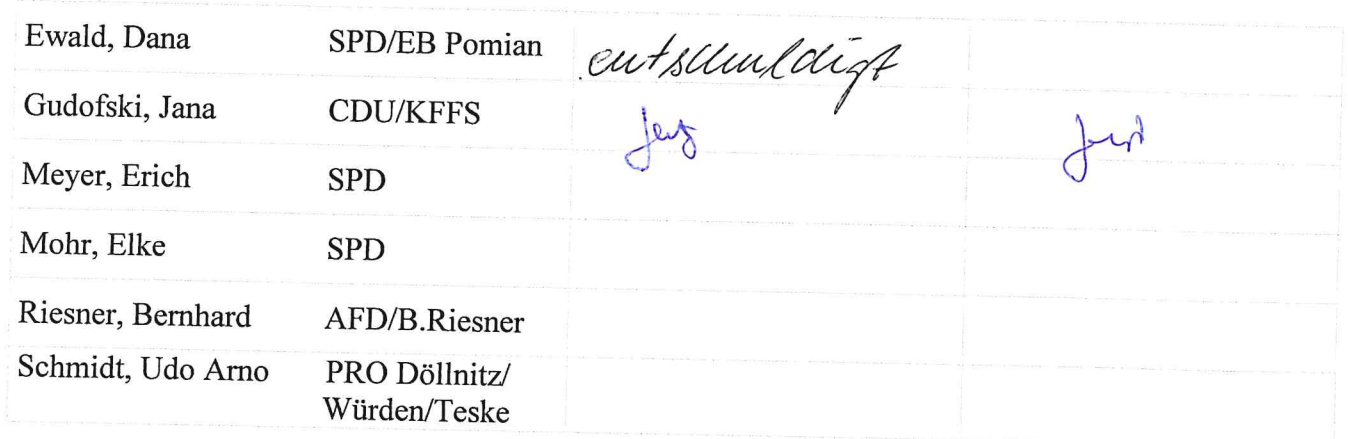 Ewald, Dana SPD/EB Pomian entschuldigt
Gudofski, Jana CDU/KFFS
Meyer, Erich SPD
Mohr, Elke SPD
Riesner, Bernhard AFD/B.Riesner
Schmidt, Udo Arno PRO Döllnitz/
Würden/Teske